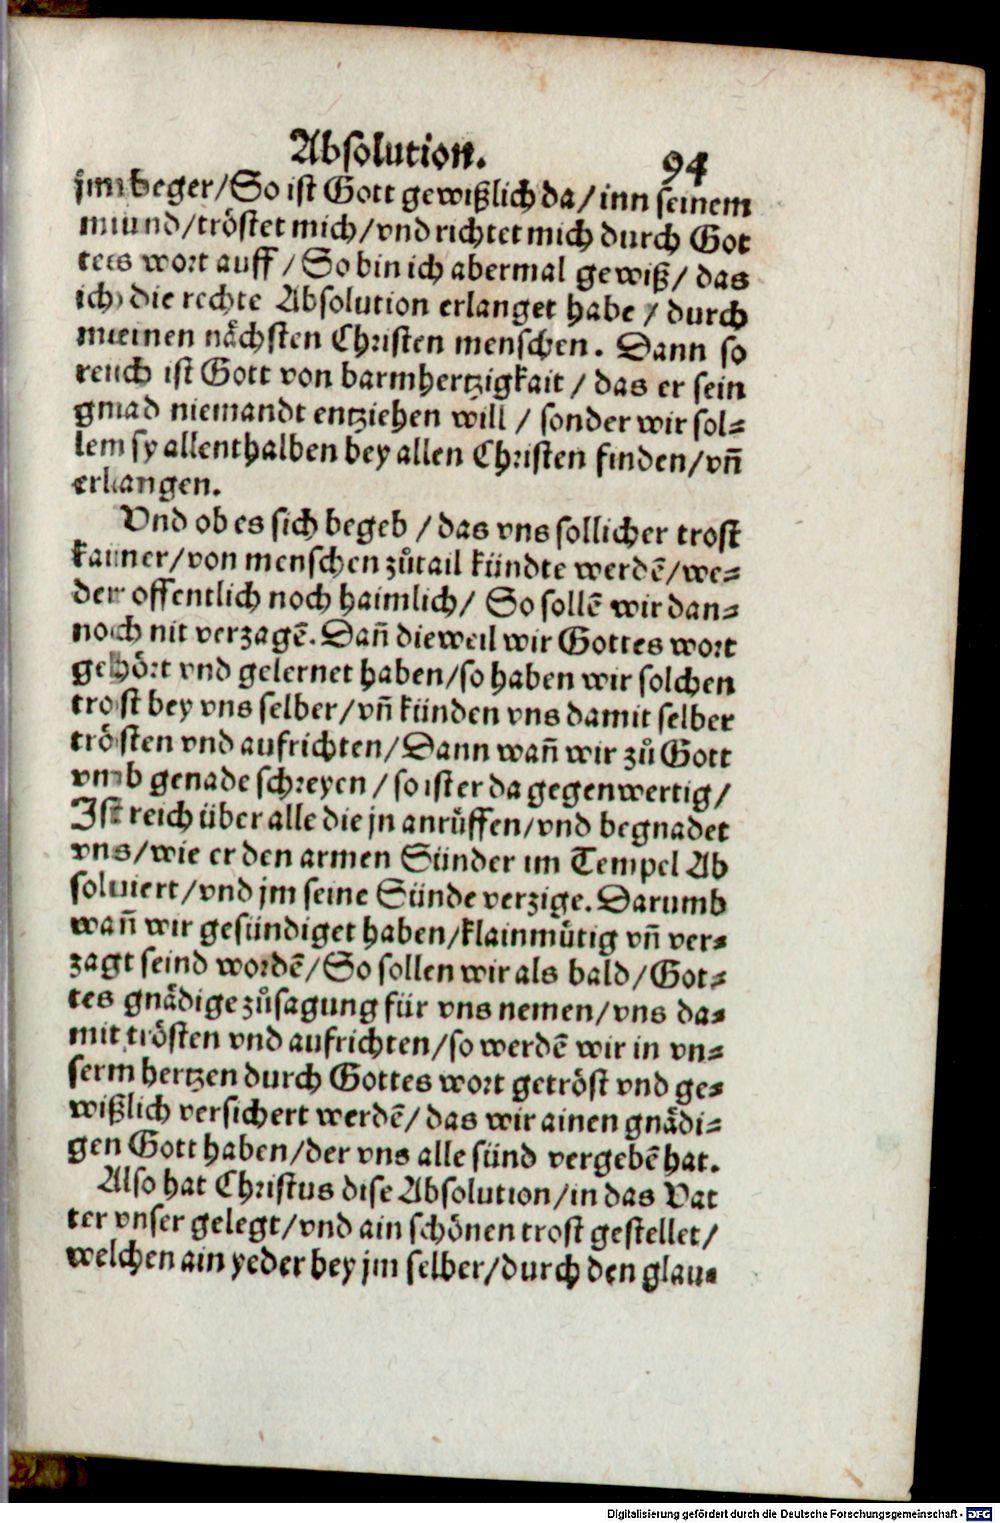 Absolution. 94
jm beger/So ist Gott gewißlich da/inn seinem
mund/tröstet mich/vnd richtet mich durch Got
tes wort auff/So bin ich abermal gewiß/das
ich die rechte Absolution erlanget habe/durch
meinen nächsten Christen menschen. Dann so
reich ist Gott von barmhertzigkait/das er sein
gnad niemandt entziehen will/sonder wir sol⸗
len sy allenthalben bey allen Christen finden/vñ
erlangen.
Vnd ob es sich begeb/das vns sollicher trost
kainer/von menschen zůtail kündte werdē/we⸗
der offentlich noch haimlich/So sollē wir dan⸗
noch nit verzagē. Dañ dieweil wir Gottes wort
gehört vnd gelernet haben/so haben wir solchen
trost bey vns selber/vñ künden vns damit selber
trösten vnd aufrichten/Dann wañ wir zů Gott
vmb genade schreyen/so ist er da gegenwertig/
Ist reich über alle die jn anrůffen/vnd begnadet
vns/wie er den armen Sünder im Tempel Ab
soluiert/vnd jm seine Sünde verzige. Darumb
wañ wir gesündiget haben/klainmütig vñ ver⸗
zagt seind wordē/So sollen wir als bald/Got⸗
tes gnädige zůsagung für vns nemen/vns da⸗
mit trösten vnd aufrichten/so werdē wir in vn⸗
serm hertzen durch Gottes wort getröst vnd ge⸗
wißlich versichert werdē/das wir ainen gnädi⸗
gen Gott haben/der vns alle sünd vergebē hat.
Also hat Christus dise Absolution/in das Vat
ter vnser gelegt/vnd ain schönen trost gestellet/
welchen ain yeder bey jm selber/durch den glau⸗
Digitalisierung gefördert durch die Deutsche Forschungsgemeinschaft - DFG